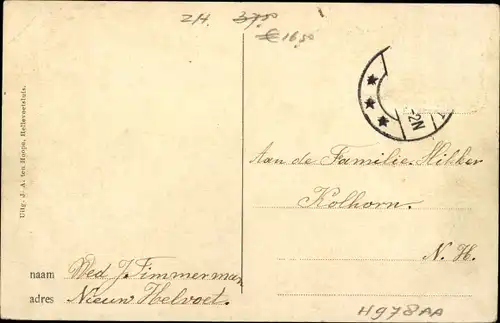 ZH. 3750
€ 16,50
-2N
Uitg. J. A. ten Hoope, Hellevoetsluis.
Aan de Familie Hikker
Kolhorn.
N. H.
naam Wed J. Timmerman
adres Nieuw Helvoet.
H978AA